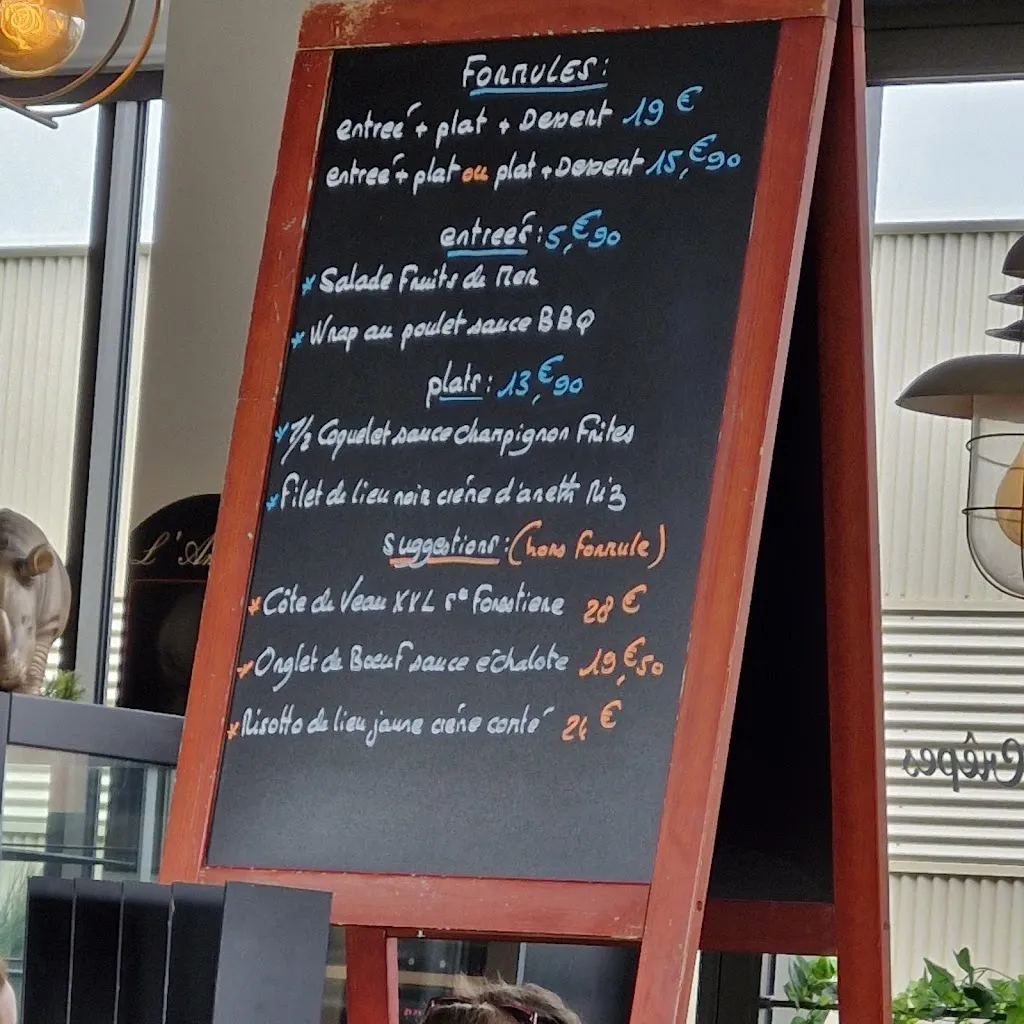 FORMULES:
entreé + plat + Dessert 19 €
entreé + plat ou plat + Dessert 15,€90
entreés: 5,€90
* Salade Fruits de Mer
* Wrap au poulet sauce BBQ
plats: 13,€90
* 1/2 Coquelet sauce champignon Frites
* Filet de lieu noir crème d'aneth Riz
suggestions: (hors formule)
* Côte de Veau XXL sce Forestiere 28 €
* Onglet de Boeuf sauce échalote 19,€50
* Risotto de lieu jaune crème conté
L'A
Crêpes